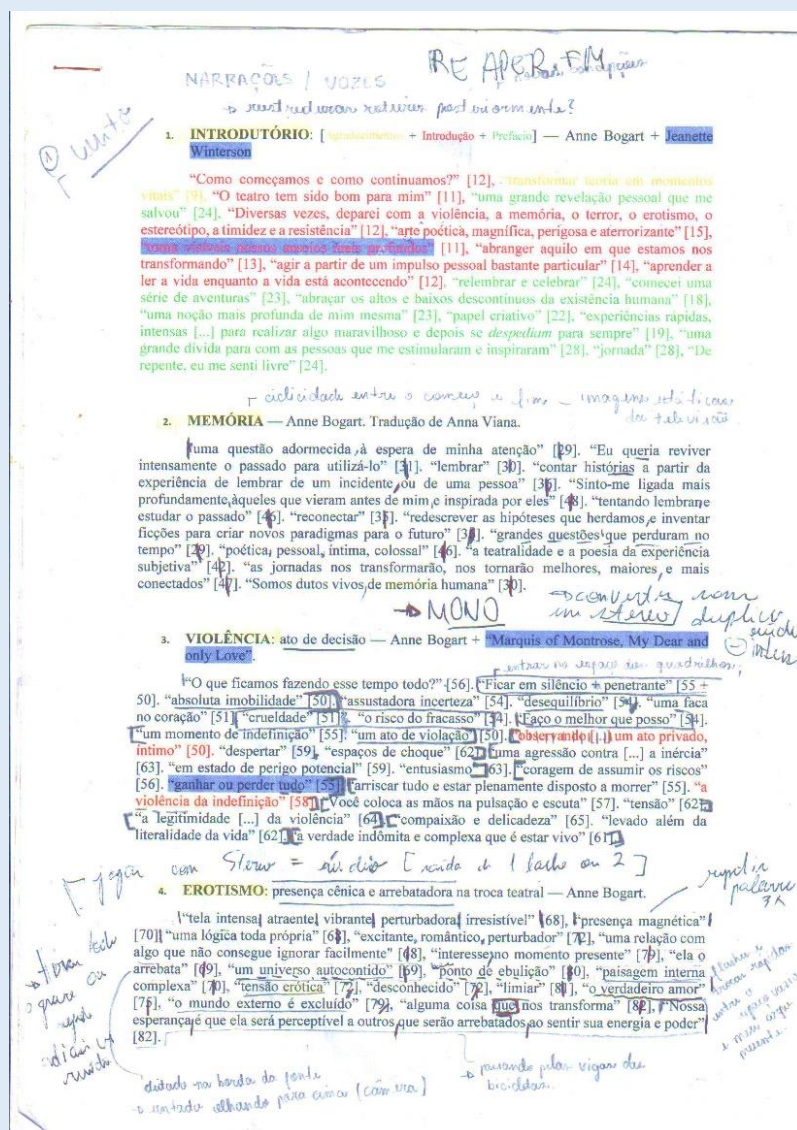 NARRAÇÕES / VOZES
REAPER FM
→ reestruturar roteiros posteriormente?
① muito
1. INTRODUTÓRIO: [Agradecimentos + Introdução + Prefácio] — Anne Bogart + Jeanette
Winterson
“Como começamos e como continuamos?” [12], “transformar teoria em momentos
vitais” [9], “O teatro tem sido bom para mim” [11], “uma grande revelação pessoal que me
salvou” [24]. “Diversas vezes, deparei com a violência, a memória, o terror, o erotismo, o
estereótipo, a timidez e a resistência” [12], “arte poética, magnífica, perigosa e aterrorizante” [15],
“torna visíveis nossos anseios mais profundos” [11], “abranger aquilo em que estamos nos
transformando” [13], “agir a partir de um impulso pessoal bastante particular” [14], “aprender a
ler a vida enquanto a vida está acontecendo” [12], “relembrar e celebrar” [24], “comecei uma
série de aventuras” [23], “abraçar os altos e baixos descontínuos da existência humana” [18],
“uma noção mais profunda de mim mesma” [23], “papel criativo” [22], “experiências rápidas,
intensas [...] para realizar algo maravilhoso e depois se despediam para sempre” [19], “uma
grande dívida para com as pessoas que me estimularam e inspiraram” [28], “jornada” [28], “De
repente, eu me senti livre” [24].
ciclicidade entre o começo e fim – imagens estáticas
da televisão
2. MEMÓRIA — Anne Bogart. Tradução de Anna Viana.
“uma questão adormecida, à espera de minha atenção” [29]. “Eu queria reviver
intensamente o passado para utilizá-lo” [31]. “lembrar” [30]. “contar histórias a partir da
experiência de lembrar de um incidente, ou de uma pessoa” [36]. “Sinto-me ligada mais
profundamente, àqueles que vieram antes de mim, e inspirada por eles” [48]. “tentando lembrar e
estudar o passado” [46]. “reconectar” [35]. “redescrever as hipóteses que herdamos, e inventar
ficções para criar novos paradigmas para o futuro” [38]. “grandes questões que perduram no
tempo” [29]. “poética, pessoal, íntima, colossal” [46]. “a teatralidade e a poesia da experiência
subjetiva” [42]. “as jornadas nos transformarão, nos tornarão melhores, maiores, e mais
conectados” [47]. “Somos dutos vivos, de memória humana” [30].
→ MONO → converter som
em stereo / duplico
3. VIOLÊNCIA: ato de decisão — Anne Bogart + “Marquis of Montrose, My Dear and
only Love”.
entrar no espaço dos quadrilhos;
“O que ficamos fazendo esse tempo todo?” [56]. “Ficar em silêncio + penetrante” [55 +
50]. “absoluta imobilidade” [50]. “assustadora incerteza” [54]. “desequilíbrio” [54]. “uma faca
no coração” [51]. “crueldade” [51]. “o risco do fracasso” [54]. “Faço o melhor que posso” [54].
“um momento de indefinição” [55]. “um ato de violação” [50]. “observando [...] um ato privado,
íntimo” [50]. “despertar” [59]. “espaços de choque” [62]. “uma agressão contra [...] a inércia”
[63]. “em estado de perigo potencial” [59]. “entusiasmo” [63]. “coragem de assumir os riscos”
[56]. “ganhar ou perder tudo” [55]. “arriscar tudo e estar plenamente disposto a morrer” [55]. “a
violência da indefinição” [58]. “Você coloca as mãos na pulsação e escuta” [57]. “tensão” [62].
“a legitimidade [...] da violência” [64]. “compaixão e delicadeza” [65]. “levado além da
literalidade da vida” [62]. “a verdade indômita e complexa que é estar vivo” [61].
jogar com Stereo = áudio [saída de 1 lado ou 2]
4. EROTISMO: presença cênica e arrebatadora na troca teatral — Anne Bogart.
repetir
palavra
3x
“tela intensa, atraente, vibrante, perturbadora, irresistível” [68], “presença magnética”
[70], “uma lógica toda própria” [68], “excitante, romântico, perturbador” [72], “uma relação com
algo que não consegue ignorar facilmente” [68], “interesse no momento presente” [79], “ela o
arrebata” [69], “um universo autocontido” [69], “ponto de ebulição” [80], “paisagem interna
complexa” [70], “tensão erótica” [72], “desconhecido” [72], “limiar” [81], “o verdadeiro amor”
[75], “o mundo externo é excluído” [79], “alguma coisa que nos transforma” [82], “Nossa
esperança é que ela será perceptível a outros, que serão arrebatados ao sentir sua energia e poder”
[82].
→ tirar todo
o grave ou
adicionar
ruído
deitado na borda da ponte
→ sentado olhando para cima (câmera)
→ passando pelas vigas das
bicicletas.